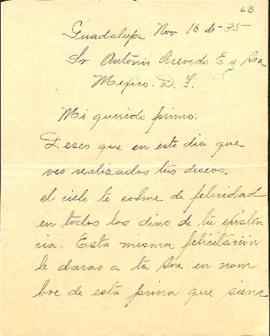 68
Guadalupe Nov 16 de-35
Sr Antonio Acevedo E y Sra
Mexico. D. F.
Mi querido primo:
Deseo que en este dia que
ves realizados tus deseos
el cielo te colme de felicidad
en todos los dias de tu existen
cia. Esta misma felicitación
le daras a tu Sra en nom
bre de esta prima que siem